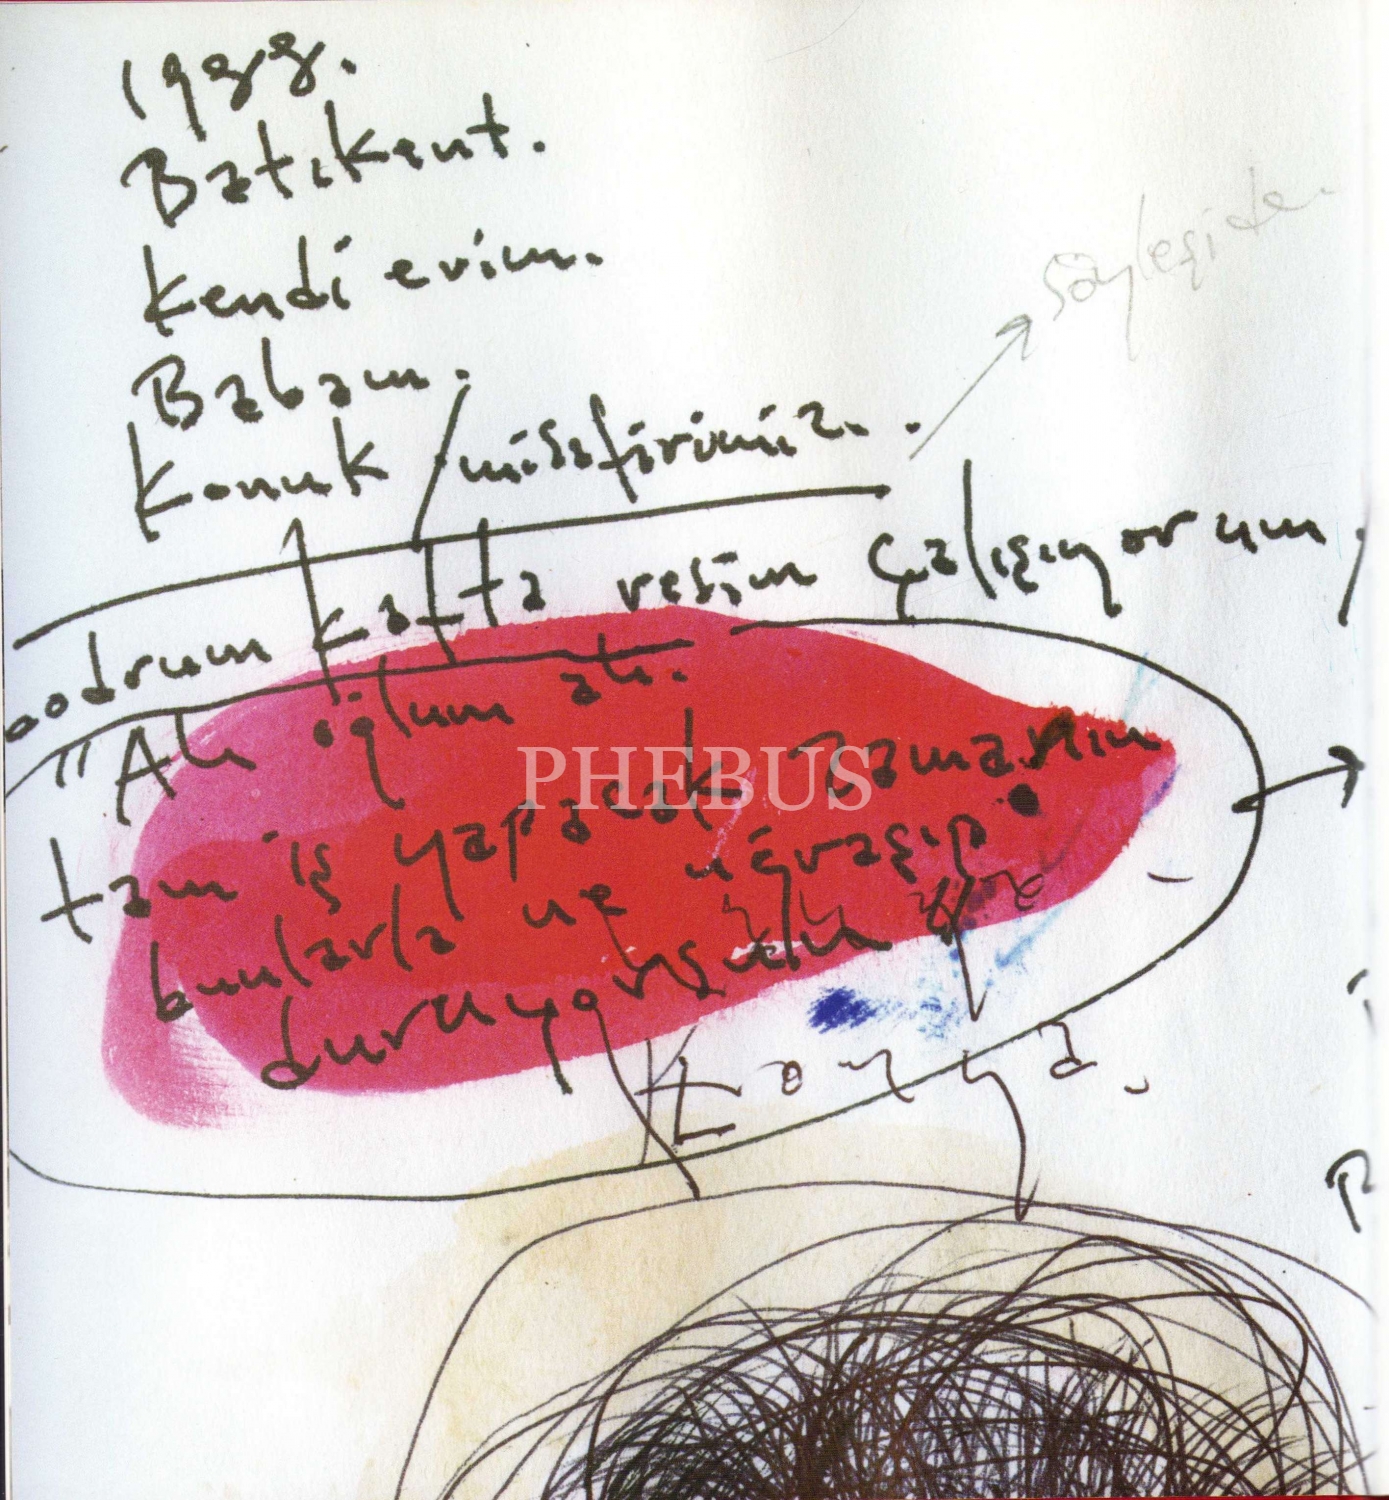 1988.
Batıkent.
Kendi evim.
Babam.
Konuk / misafirimiz.
söyleşide
bodrum katta resim çalışıyorum,
"Ah oğlum ah.
PHEBUS
tam iş yapacak zamanın
bunlarla ne uğraşıp
duruyorsun
Konya.